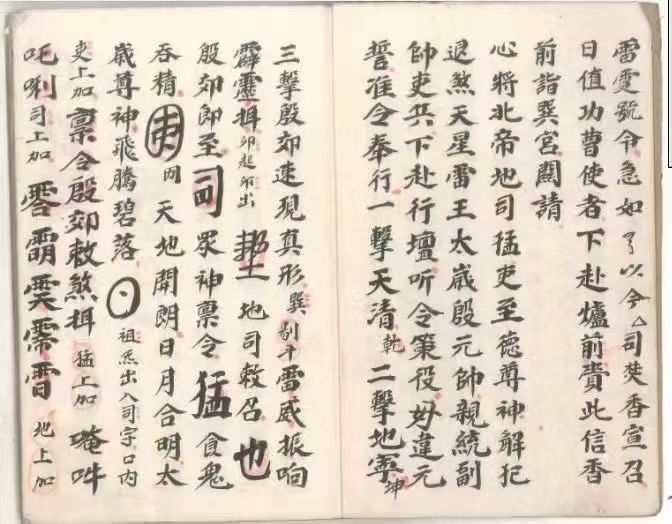 雷霆號令急如了以今司焚香宣召
日值功曹使者下赴爐前賫此信香
前詣巽宮關請
心將北帝地司猛吏至德尊神解犯
退煞天星雷王太歲殷元帥親統副
帥吏兵下赴行壇听令策役好違元
誓准令奉行一擊天清乾二擊地寧坤
三擊殷郊速現真形巽剔干雷威振响
霹靂揖卯起卯出 地司敕召也
殷郊即至司眾神稟令猛食鬼
吞精 天地開朗日月合明太
歲尊神飛騰碧落 祖炁出入司字口內
吏上加稟令殷郊敕煞揖猛上加唵吽
吒唎司上加 地上加